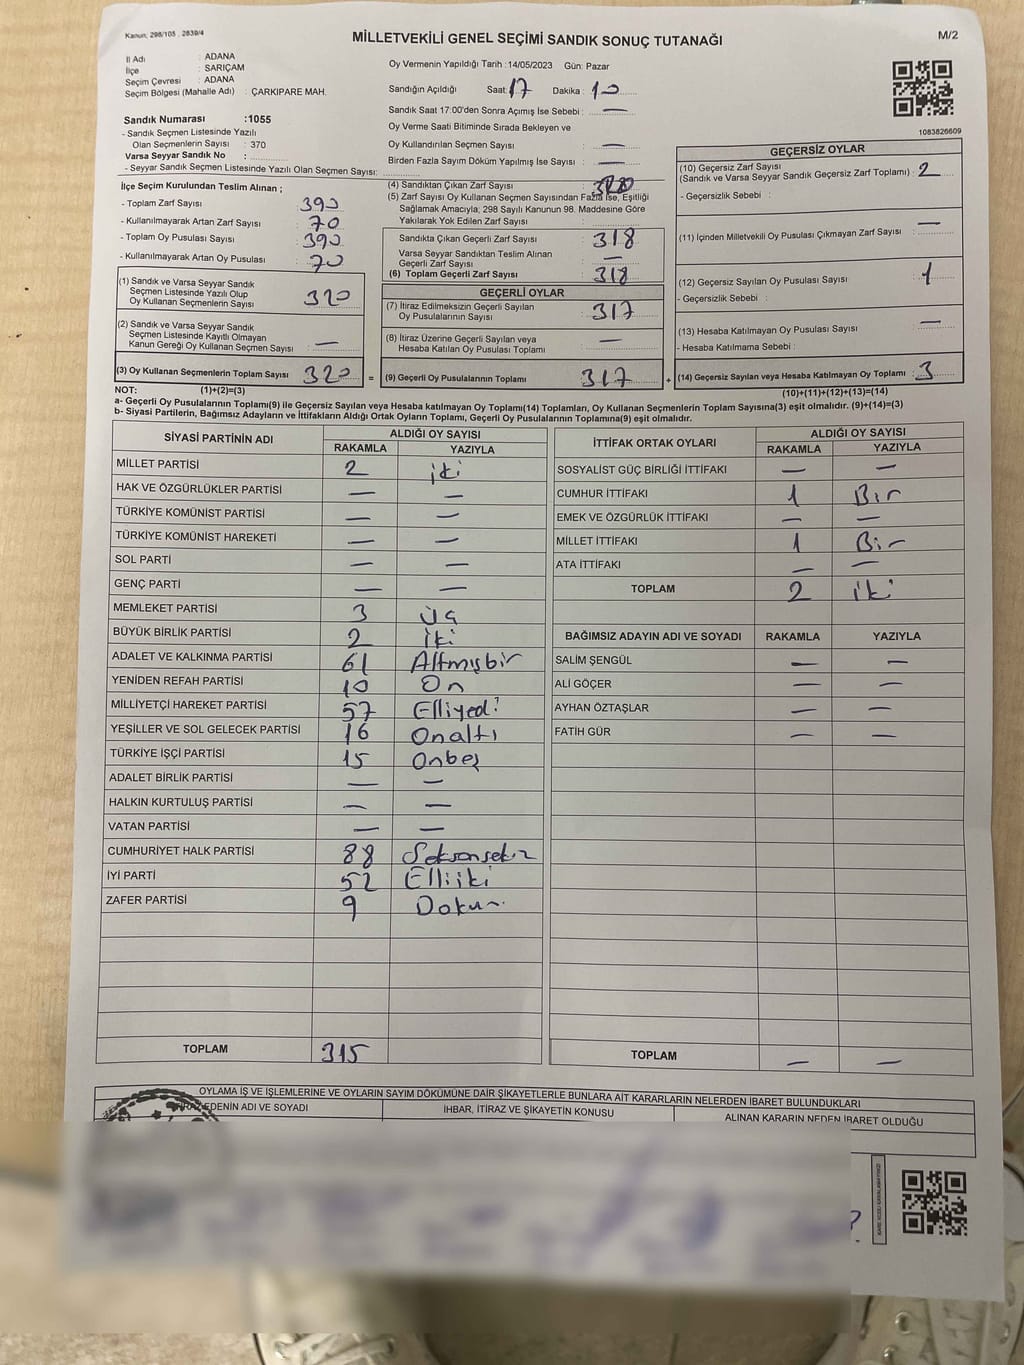 Kanun; 298/105 , 2839/4
MİLLETVEKİLİ GENEL SEÇİMİ SANDIK SONUÇ TUTANAĞI
M/2
İl Adı : ADANA
İlçe : SARIÇAM
Seçim Çevresi : ADANA
Seçim Bölgesi (Mahalle Adı) : ÇARKIPARE MAH.
Sandık Numarası :1055
- Sandık Seçmen Listesinde Yazılı
Olan Seçmenlerin Sayısı : 370
Varsa Seyyar Sandık No :
- Seyyar Sandık Seçmen Listesinde Yazılı Olan Seçmen Sayısı:
Oy Vermenin Yapıldığı Tarih :14/05/2023 Gün: Pazar
Sandığın Açıldığı Saat: 17 Dakika : 10
Sandık Saat 17:00'den Sonra Açımış İse Sebebi : —
Oy Verme Saati Bitiminde Sırada Bekleyen ve
Oy Kullandırılan Seçmen Sayısı : —
Birden Fazla Sayım Döküm Yapılmış İse Sayısı : —
1083826609
İlçe Seçim Kurulundan Teslim Alınan ;
- Toplam Zarf Sayısı : 390
- Kullanılmayarak Artan Zarf Sayısı : 70
- Toplam Oy Pusulası Sayısı : 390
- Kullanılmayarak Artan Oy Pusulası : 70
(1) Sandık ve Varsa Seyyar Sandık
Seçmen Listesinde Yazılı Olup
Oy Kullanan Seçmenlerin Sayısı : 320
(2) Sandık ve Varsa Seyyar Sandık
Seçmen Listesinde Kayıtlı Olmayan
Kanun Gereği Oy Kullanan Seçmen Sayısı : —
(3) Oy Kullanan Seçmenlerin Toplam Sayısı : 320
(4) Sandıktan Çıkan Zarf Sayısı :
(5) Zarf Sayısı Oy Kullanan Seçmen Sayısından Fazla İse, Eşitliği
Sağlamak Amacıyla; 298 Sayılı Kanunun 98. Maddesine Göre
Yakılarak Yok Edilen Zarf Sayısı :
Sandıkta Çıkan Geçerli Zarf Sayısı : 318
Varsa Seyyar Sandıktan Teslim Alınan
Geçerli Zarf Sayısı : —
(6) Toplam Geçerli Zarf Sayısı : 318
GEÇERLİ OYLAR
(7) İtiraz Edilmeksizin Geçerli Sayılan
Oy Pusulalarının Sayısı : 317
(8) İtiraz Üzerine Geçerli Sayılan veya
Hesaba Katılan Oy Pusulası Toplamı : —
= (9) Geçerli Oy Pusulalarının Toplamı : 317
GEÇERSİZ OYLAR
(10) Geçersiz Zarf Sayısı
(Sandık ve Varsa Seyyar Sandık Geçersiz Zarf Toplamı) : 2
- Geçersizlik Sebebi :
(11) İçinden Milletvekili Oy Pusulası Çıkmayan Zarf Sayısı : —
(12) Geçersiz Sayılan Oy Pusulası Sayısı : 1
- Geçersizlik Sebebi :
(13) Hesaba Katılmayan Oy Pusulası Sayısı : —
- Hesaba Katılmama Sebebi :
+ (14) Geçersiz Sayılan veya Hesaba Katılmayan Oy Toplamı : 3
NOT: (1)+(2)=(3)
(10)+(11)+(12)+(13)=(14)
a- Geçerli Oy Pusulalarının Toplamı(9) ile Geçersiz Sayılan veya Hesaba katılmayan Oy Toplamı(14) Toplamları, Oy Kullanan Seçmenlerin Toplam Sayısına(3) eşit olmalıdır. (9)+(14)=(3)
b- Siyasi Partilerin, Bağımsız Adayların ve İttifakların Aldığı Ortak Oyların Toplamı, Geçerli Oy Pusulalarının Toplamına(9) eşit olmalıdır.
SİYASİ PARTİNİN ADI
ALDIĞI OY SAYISI
RAKAMLA YAZIYLA
MİLLET PARTİSİ 2 iki
HAK VE ÖZGÜRLÜKLER PARTİSİ — —
TÜRKİYE KOMÜNİST PARTİSİ — —
TÜRKİYE KOMÜNİST HAREKETİ — —
SOL PARTİ — —
GENÇ PARTİ — —
MEMLEKET PARTİSİ 3 üç
BÜYÜK BİRLİK PARTİSİ 2 iki
ADALET VE KALKINMA PARTİSİ 61 Altmışbir
YENİDEN REFAH PARTİSİ 10 On
MİLLİYETÇİ HAREKET PARTİSİ 57 Elliyedi
YEŞİLLER VE SOL GELECEK PARTİSİ 16 Onaltı
TÜRKİYE İŞÇİ PARTİSİ 15 Onbeş
ADALET BİRLİK PARTİSİ — —
HALKIN KURTULUŞ PARTİSİ — —
VATAN PARTİSİ — —
CUMHURİYET HALK PARTİSİ 88 Seksensekiz
İYİ PARTİ 52 Elliiki
ZAFER PARTİSİ 9 Dokuz
TOPLAM 315
İTTİFAK ORTAK OYLARI
ALDIĞI OY SAYISI
RAKAMLA YAZIYLA
SOSYALİST GÜÇ BİRLİĞİ İTTİFAKI — —
CUMHUR İTTİFAKI 1 Bir
EMEK VE ÖZGÜRLÜK İTTİFAKI — —
MİLLET İTTİFAKI 1 Bir
ATA İTTİFAKI — —
TOPLAM 2 iki
BAĞIMSIZ ADAYIN ADI VE SOYADI RAKAMLA YAZIYLA
SALİM ŞENGÜL — —
ALİ GÖÇER — —
AYHAN ÖZTAŞLAR — —
FATİH GÜR — —
TOPLAM — —
OYLAMA İŞ VE İŞLEMLERİNE VE OYLARIN SAYIM DÖKÜMÜNE DAİR ŞİKAYETLERLE BUNLARA AİT KARARLARIN NELERDEN İBARET BULUNDUKLARI
EDENİN ADI VE SOYADI
İHBAR, İTİRAZ VE ŞİKAYETİN KONUSU
ALINAN KARARIN NEDEN İBARET OLDUĞU